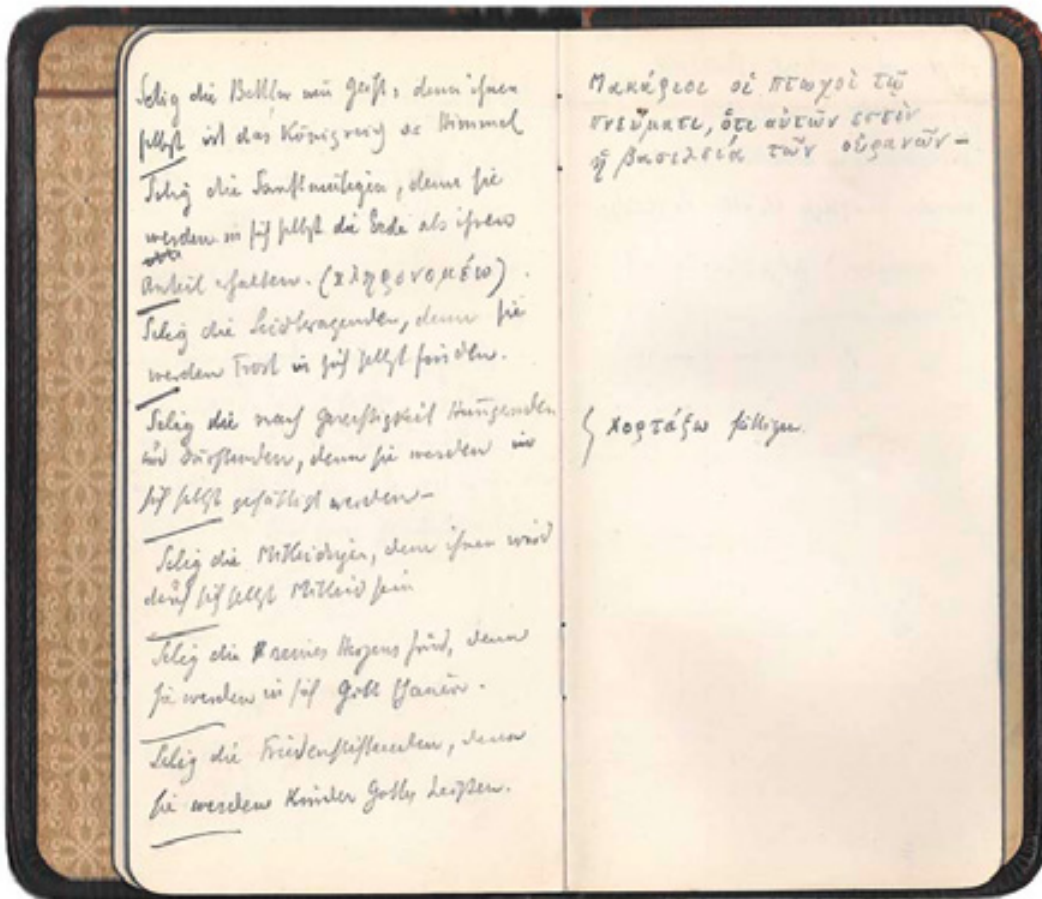 Selig die Bettler um Geist, denn ihnen
selbst ist das Königreich der Himmel
Selig die Sanftmütigen, denn sie
werden in sich selbst die Erde als ihren
Anteil erhalten. (κληρονομέω).
Selig die Leidtragenden, denn sie
werden Trost in sich selbst finden.
Selig die nach Gerechtigkeit Hungernden
und Dürstenden, denn sie werden in
sich selbst gesättigt werden –
Selig die Mitleidigen, denn ihnen wird
durch sich selbst Mitleid sein
Selig die reines Herzens sind, denn
sie werden in sich Gott schauen.
Selig die Friedenstiftenden, denn
sie werden Kinder Gottes heißen.
Μακάριοι οἱ πτωχοὶ τῷ
πνεύματι, ὅτι αὐτῶν ἐστὶν
ἡ βασιλεία τῶν οὐρανῶν –
χορτάζω sättigen.